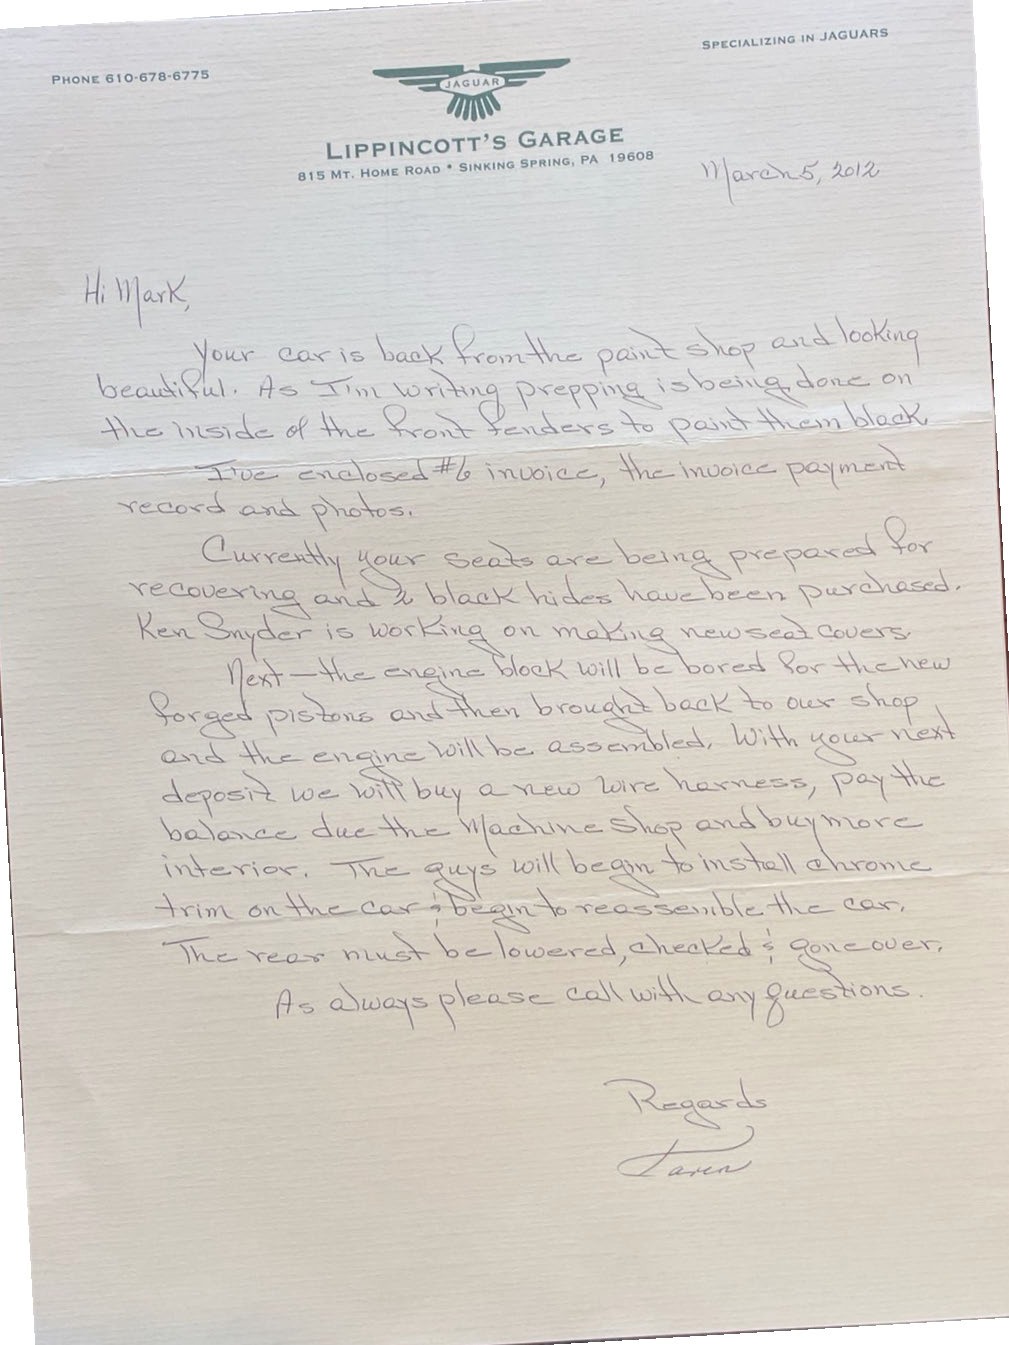 PHONE 610-678-6775
SPECIALIZING IN JAGUARS
JAGUAR
LIPPINCOTT'S GARAGE
815 MT. HOME ROAD • SINKING SPRING, PA 19608
March 5, 2012
Hi Mark,
Your car is back from the paint shop and looking
beautiful. As I'm writing prepping is being done on
the inside of the front fenders to paint them black
I've enclosed #6 invoice, the invoice payment
record and photos.
Currently your seats are being prepared for
recovering and 2 black hides have been purchased.
Ken Snyder is working on making new seat covers.
Next — the engine block will be bored for the new
forged pistons and then brought back to our shop
and the engine will be assembled. With your next
deposit we will buy a new wire harness, pay the
balance due the Machine Shop and buy more
interior. The guys will begin to install chrome
trim on the car & begin to reassemble the car.
The rear must be lowered, checked & gone over.
As always please call with any questions.
Regards
Karen